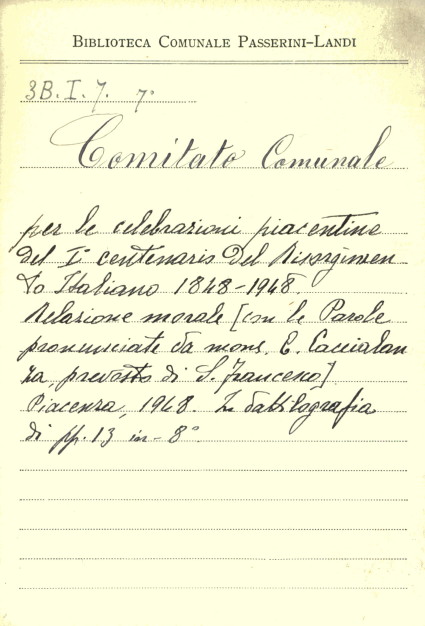 BIBLIOTECA COMUNALE PASSERINI-LANDI
3B.I.7. 7°
Comitato Comunale
per le celebrazioni piacentine
del I° centenario del Risorgimen
to Italiano 1848-1948.
Relazione morale [con le Parole
pronunciate da mons. C. Caccialan
za, prevosto di S. Francesco]
Piacenza, 1948. In dattilografia
di pp. 13 in-8°.